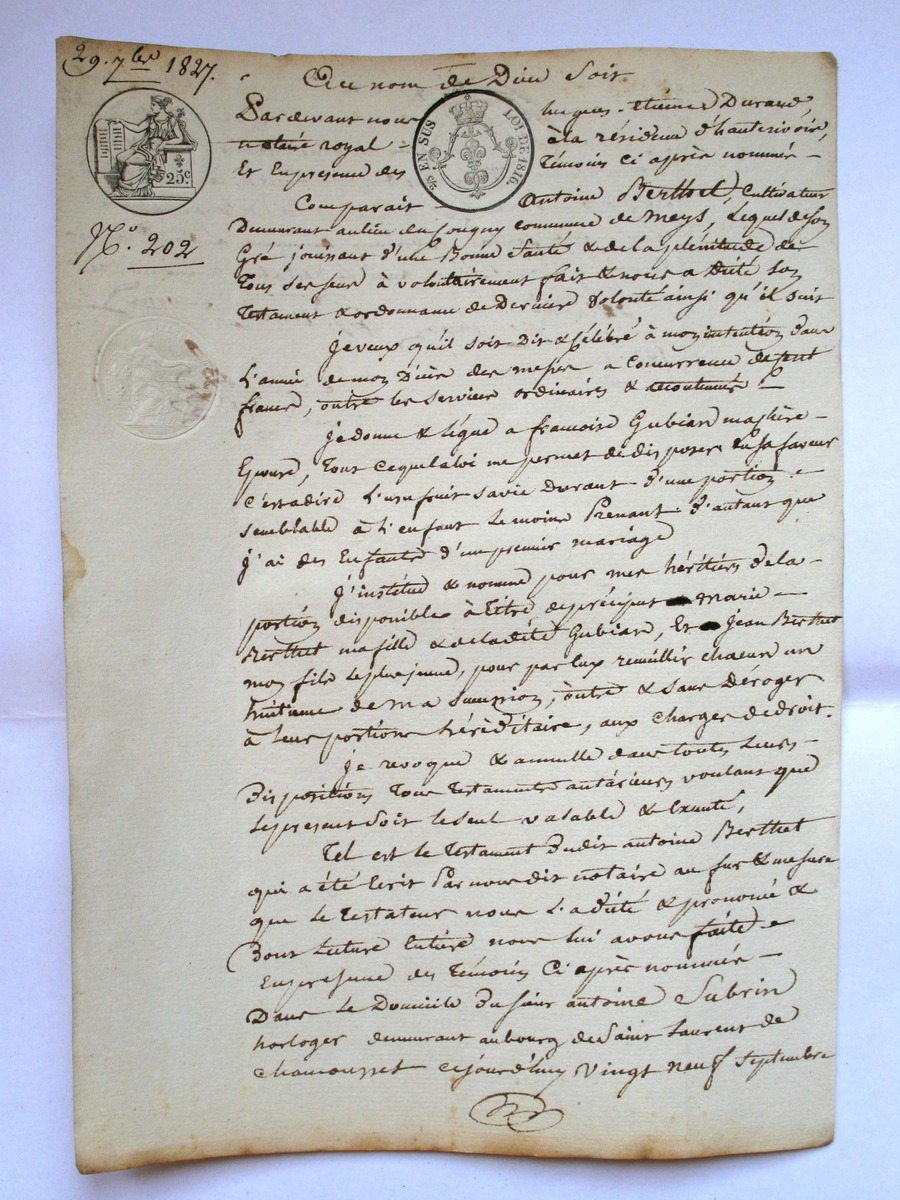 29. 7bre 1827.
Au nom de Dieu soit
Pardevant nous hugues-Etienne Durand,
notaire royal à la résidence d'hauterivoire,
Et En presence des Témoins Ci après nommés
25 EN SUS LOI DE 1816.
25c
N° 202
Comparait Antoine Berthet, Cultivateur
Demeurant au lieu du Jougny commune de Meys, Lequel de son
Gré jouissant d'une Bonne Santé & de la plénitude de
Tous ses sens à volontairement fait & nous a Dicté son
Testament & ordonnance de Derniere Volonté ainsi qu'il suit
Je veux qu'il soit Dit & Célébré à mon intention dans
L'année de mon Décès des messes a Concurrence de cent
francs, outre les services ordinaires & accoutumés
Je donne & légue a francoise Gubian ma chère
Epouse, Tout ce que la loi me permet de disposer En sa faveur
C'est a dire L'usufruit sa vie Durant d'une portion
semblable à L'enfant Le moins Prenant d'autant que
j'ai des Enfants d'un premier mariage
J'institue & nomme pour mes héritiers de la
portion disponible à titre de préciput Marie
Berthet ma fille & de la dite Gubian, Et Jean Berthet
mon fils le plus jeune, pour par Eux recueillir chacun un
huitieme de ma succession, outre & sans Déroger
à leurs portions héréditaire, aux charges de droit.
je revoque & annulle dans toutes leurs
Dispositions Tous Testaments antérieurs voulant que
le present soit le seul valable & Exécuté,
Tel est le Testament dudit antoine Berthet
qui a été Ecrit Par nous dit notaire au fur & mesure
que le Testateur nous L'a dicté & prononcé &
Dont Lecture Entière nous lui avons faite
En presence des Témoins Ci après nommés
Dans le Domicile du sieur antoine Subrin
horloger demeurant au bourg de Saint Laurent de
Chamousset cejourd'huy Vingt neuf Septembre